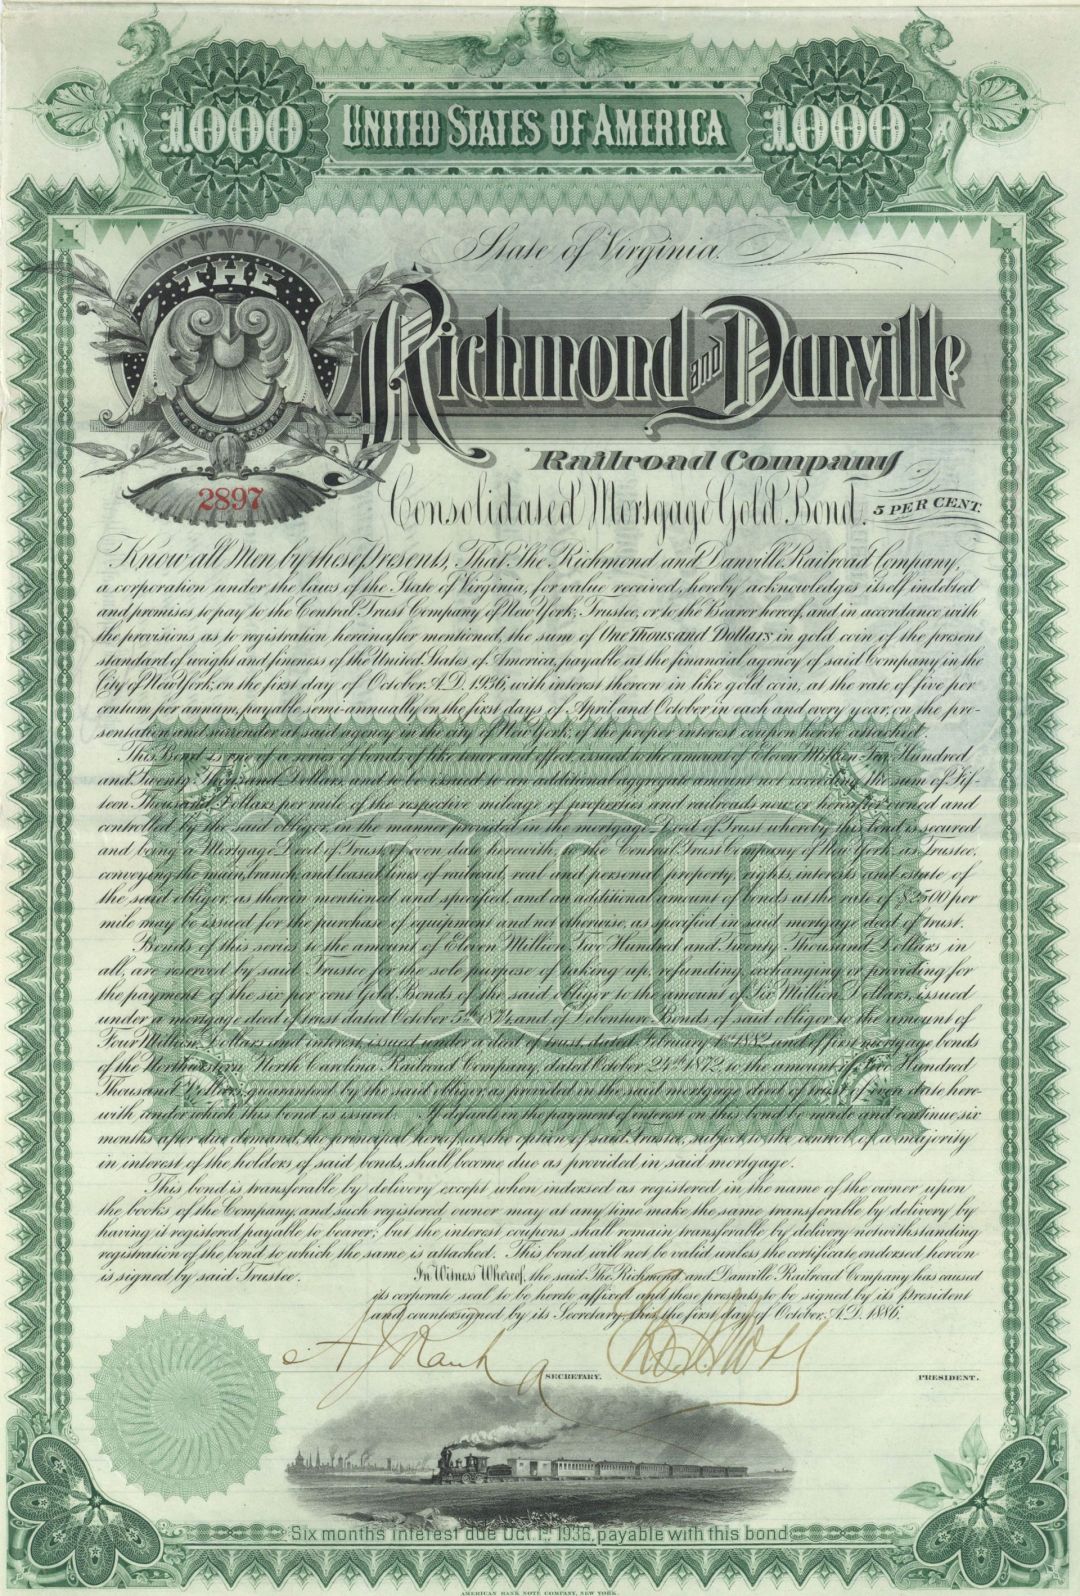 1000 UNITED STATES OF AMERICA 1000
State of Virginia.
THE
Richmond and Danville
Railroad Company
2897
Consolidated Mortgage Gold Bond. 5 PER CENT.
Know all Men by these Presents, That The Richmond and Danville Railroad Company,
a corporation under the laws of the State of Virginia, for value received, hereby acknowledges itself indebted
and promises to pay to the Central Trust Company of New York, Trustee, or to the Bearer hereof, and in accordance with
the provisions as to registration hereinafter mentioned, the sum of One Thousand Dollars in gold coin of the present
standard of weight and fineness of the United States of America, payable at the financial agency of said Company in the
City of New York, on the first day of October, A.D. 1936, with interest thereon in like gold coin, at the rate of five per
centum per annum, payable semi-annually on the first days of April and October in each and every year, on the pre-
sentation and surrender at said agency in the city of New York, of the proper interest coupon hereto attached.
This Bond is one of a series of bonds of like tenor and effect, issued to the amount of Eleven Million Two Hundred
and Twenty Thousand Dollars, and to be issued to an additional aggregate amount not exceeding the sum of Fif-
teen Thousand Dollars per mile of the respective mileage of properties and railroads now or hereafter owned and
controlled by the said obligor, in the manner provided in the mortgage Deed of Trust whereby this bond is secured
and being a Mortgage Deed of Trust of even date herewith, to the Central Trust Company of New York, as Trustee,
conveying the main, branch, and leased lines of railroad, real and personal property, rights, interests and estate of
the said obligor, as therein mentioned and specified, and an additional amount of bonds at the rate of $2500 per
mile may be issued for the purchase of equipment and not otherwise, as specified in said mortgage deed of trust.
Bonds of this series to the amount of Eleven Million Two Hundred and Twenty Thousand Dollars in
all, are reserved by said Trustee for the sole purpose of taking up, refunding, exchanging or providing for
the payment of the six per cent Gold Bonds of the said obligor to the amount of Six Million Dollars, issued
under a mortgage deed of trust dated October 5th 1874, and of Debenture Bonds of said obligor to the amount of
Four Million Dollars and interest, issued under a deed of trust, dated February 1st 1882, and of first mortgage bonds
of the Northwestern North Carolina Railroad Company, dated October 24th 1872, to the amount of Five Hundred
Thousand Dollars, guaranteed by the said obligor, as provided in the said mortgage deed of trust of even date here-
with under which this bond is issued. If default in the payment of interest in this bond be made and continue six
months after due demand, the principal hereof, at the option of said Trustee, subject to the control of a majority
in interest of the holders of said bonds, shall become due as provided in said mortgage.
This bond is transferable by delivery except when indorsed as registered in the name of the owner upon
the books of the Company, and such registered owner may at any time make the same transferable by delivery by
having it registered payable to bearer; but the interest coupons shall remain transferable by delivery notwithstanding
registration of the bond to which the same is attached. This bond will not be valid unless the certificate endorsed hereon
is signed by said Trustee. In Witness Whereof, the said The Richmond and Danville Railroad Company has caused
its corporate seal to be hereto affixed and these presents to be signed by its President
and countersigned by its Secretary this the first day of October, A.D. 1886.
SECRETARY. PRESIDENT.
Six months interest due Oct. 1st, 1936, payable with this bond
AMERICAN BANK NOTE COMPANY, NEW YORK.